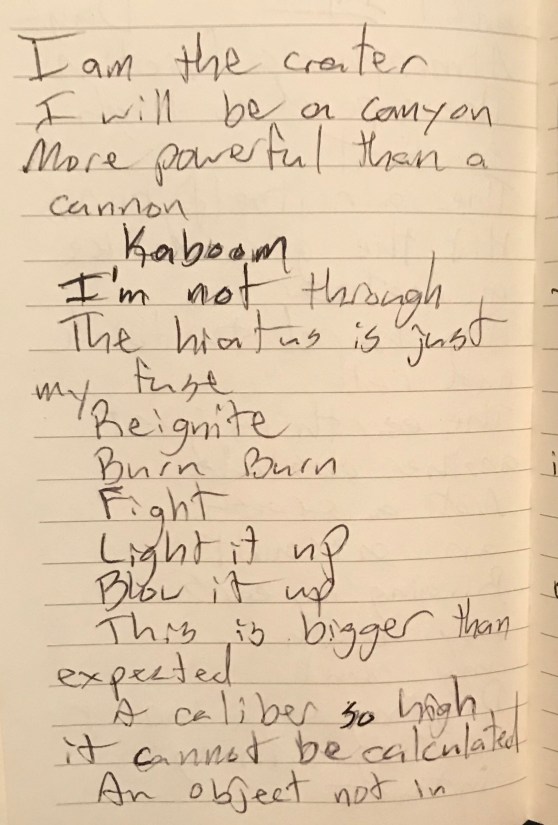 I am the crater
I will be a canyon
More powerful than a
cannon
Kaboom
I'm not through
The hiatus is just
my fuse
Reignite
Burn Burn
Fight
Light it up
Blow it up
This is bigger than
expected
A caliber so high
it cannot be calculated
An object not in